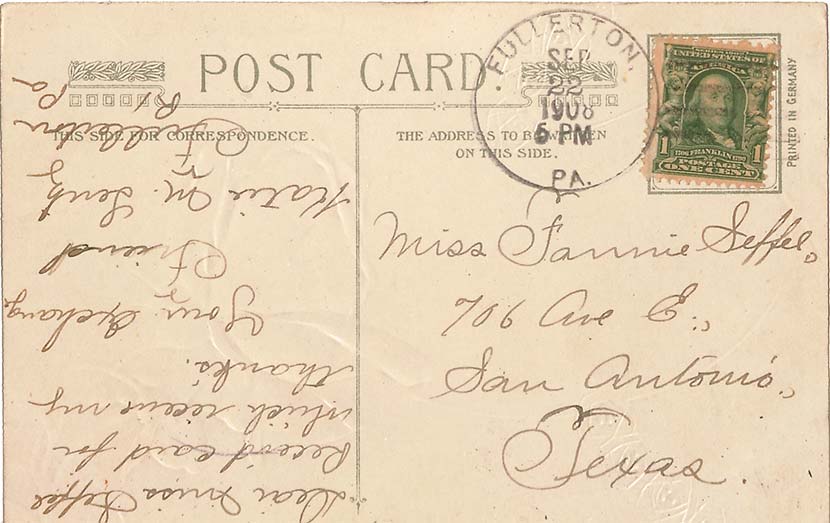 POST CARD.
THIS SIDE FOR CORRESPONDENCE.
THE ADDRESS TO BE WRITTEN
ON THIS SIDE.
FULLERTON,
SEP
22
1908
5 PM
PA.
UNITED STATES OF
AMERICA
1 1706 FRANKLIN 1790 1
POSTAGE
ONE CENT
PRINTED IN GERMANY
Miss Fannie Seffel,
706 Ave E.,
San Antonio,
Texas.
Dear Miss Seffel
Receivd card for
which receive my
thanks.
Your Exchang
Friend
Katie M. Lentz
Fullerton
R1 Pa